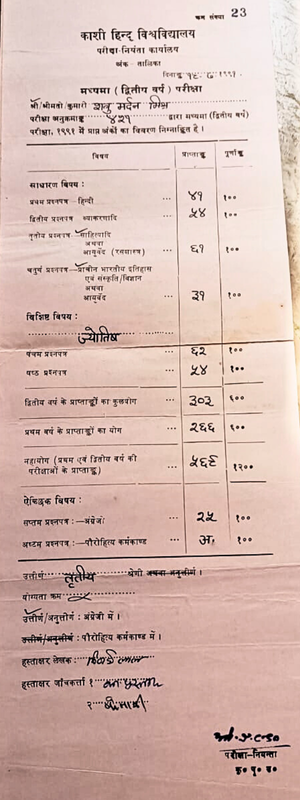 क्रम संख्या 23
काशी हिन्दू विश्वविद्यालय
परीक्षा-नियंता कार्यालय
अंक - तालिका
दिनाङ्क १९९१
मध्यमा (द्वितीय वर्ष) परीक्षा
श्री/श्रीमती/कुमारी शत्रु मर्दन मिश्र
परीक्षा अनुक्रमाङ्क ४२१ द्वारा मध्यमा (द्वितीय वर्ष)
परीक्षा, १९९१ में प्राप्त अंकों का विवरण निम्नांकित है ।
विषय प्राप्ताङ्क पूर्णाङ्क
साधारण विषय :
प्रथम प्रश्नपत्र - हिन्दी ... ४१ १००
द्वितीय प्रश्नपत्र व्याकरणादि ... ५४ १००
तृतीय प्रश्नपत्र - साहित्यादि
अथवा
आयुर्वेद (रसशास्त्र) ... ६१ १००
चतुर्थ प्रश्नपत्र - प्राचीन भारतीय इतिहास
एवं संस्कृति/विज्ञान
अथवा
आयुर्वेद ... ३१ १००
विशिष्ट विषय :
ज्योतिष
पंचम प्रश्नपत्र ... ६२ १००
षष्ठ प्रश्नपत्र ... ५४ १००
द्वितीय वर्ष के प्राप्ताङ्कों का कुलयोग ... ३०३ ६००
प्रथम वर्ष के प्राप्ताङ्कों का योग ... २६६ ६००
महायोग (प्रथम एवं द्वितीय वर्ष की
परीक्षाओं के प्राप्ताङ्क) ... ५६९ १२००
ऐच्छिक विषय :
सप्तम प्रश्नपत्र : - अंग्रेजी ... २५ १००
अष्टम प्रश्नपत्र : - पौरोहित्य कर्मकाण्ड ... अ. १००
उत्तीर्ण तृतीय श्रेणी अथवा अनुत्तीर्ण ।
योग्यता क्रम
उत्तीर्ण/अनुत्तीर्ण : अंग्रेजी में ।
उत्तीर्ण/अनुत्तीर्ण : पौरोहित्य कर्मकाण्ड में ।
हस्ताक्षर लेखक
हस्ताक्षर जाँचकर्त्ता १
२
परीक्षा-नियन्ता
कृ० पृ० उ०